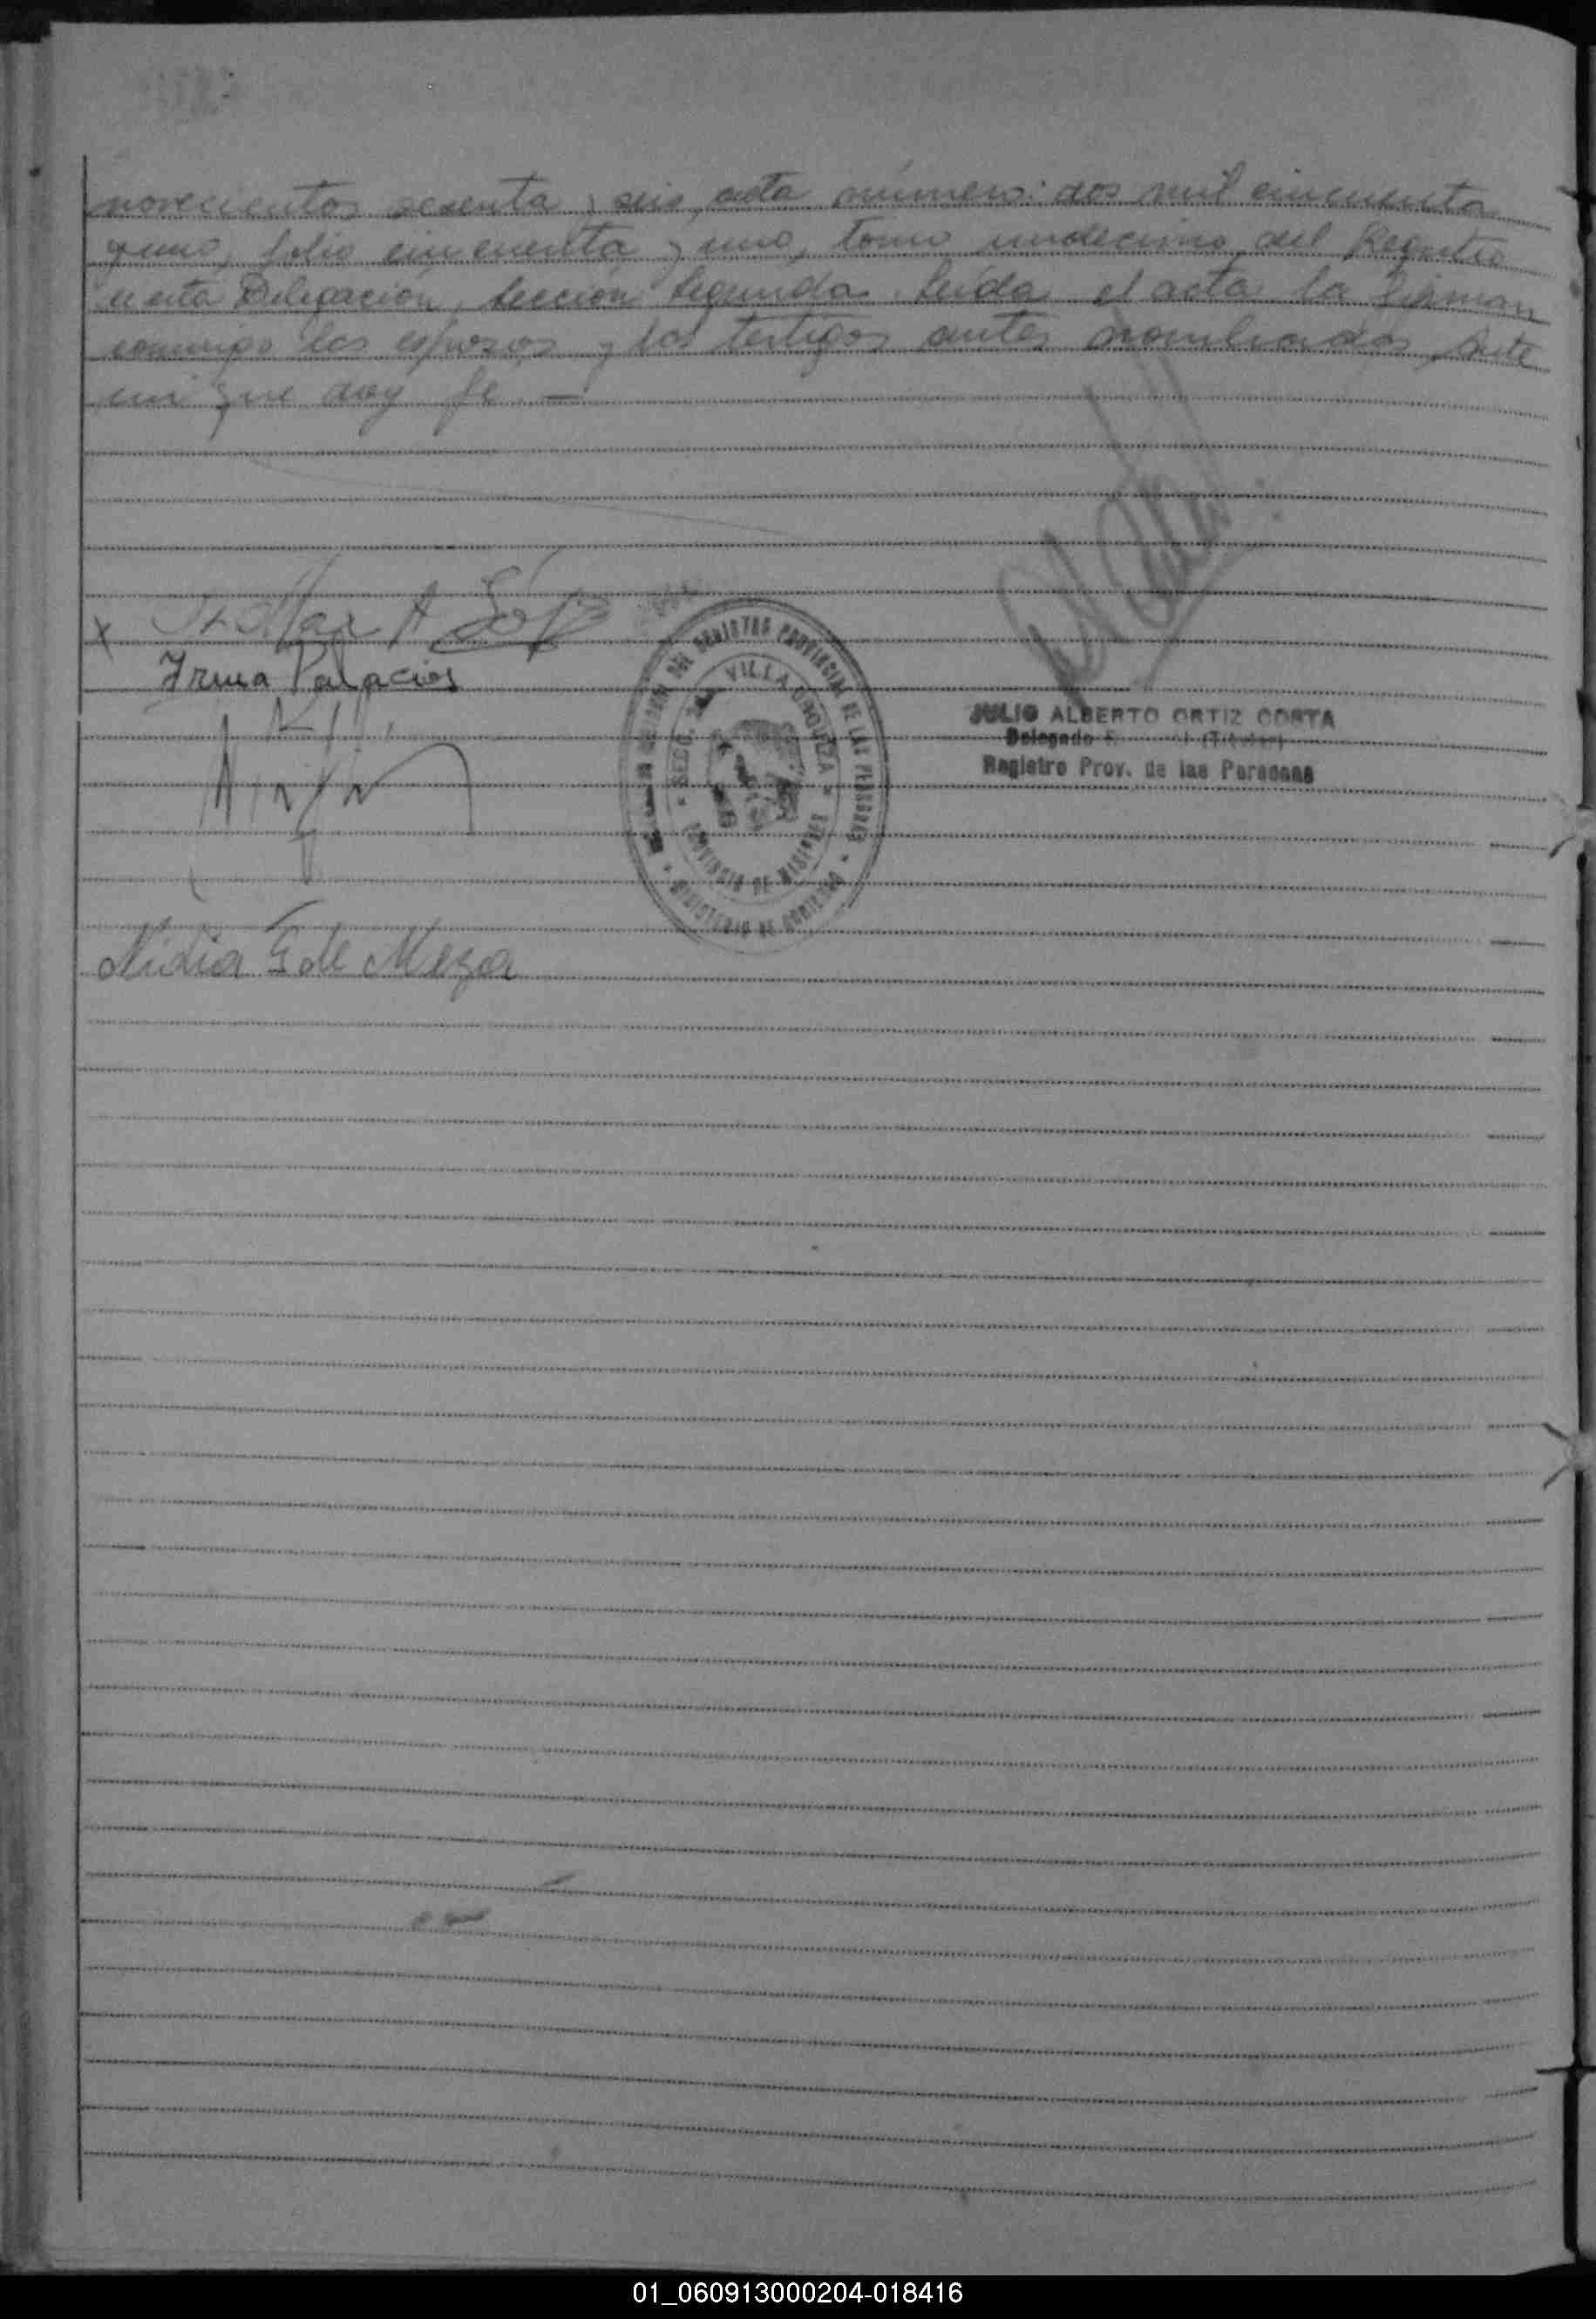 novecientos sesenta y seis, acta número: dos mil cincuenta
y uno, folio cincuenta y uno, tomo undecimo, del Registro
de esta Delegación, Sección Segunda. Leída el acta la firman
conmigo los esposos y los testigos antes nombrados, ante
mi que doy fe. —
x
Irma Palacios
VILLA
REGISTRO PROVINCIAL DE LAS PERSONAS
MINISTERIO DE GOBIERNO
PROVINCIA DE
JULIO ALBERTO ORTIZ CORTA
Delegado (Titular)
Registro Prov. de las Personas
Nidia G de Meza
01_060913000204-018416